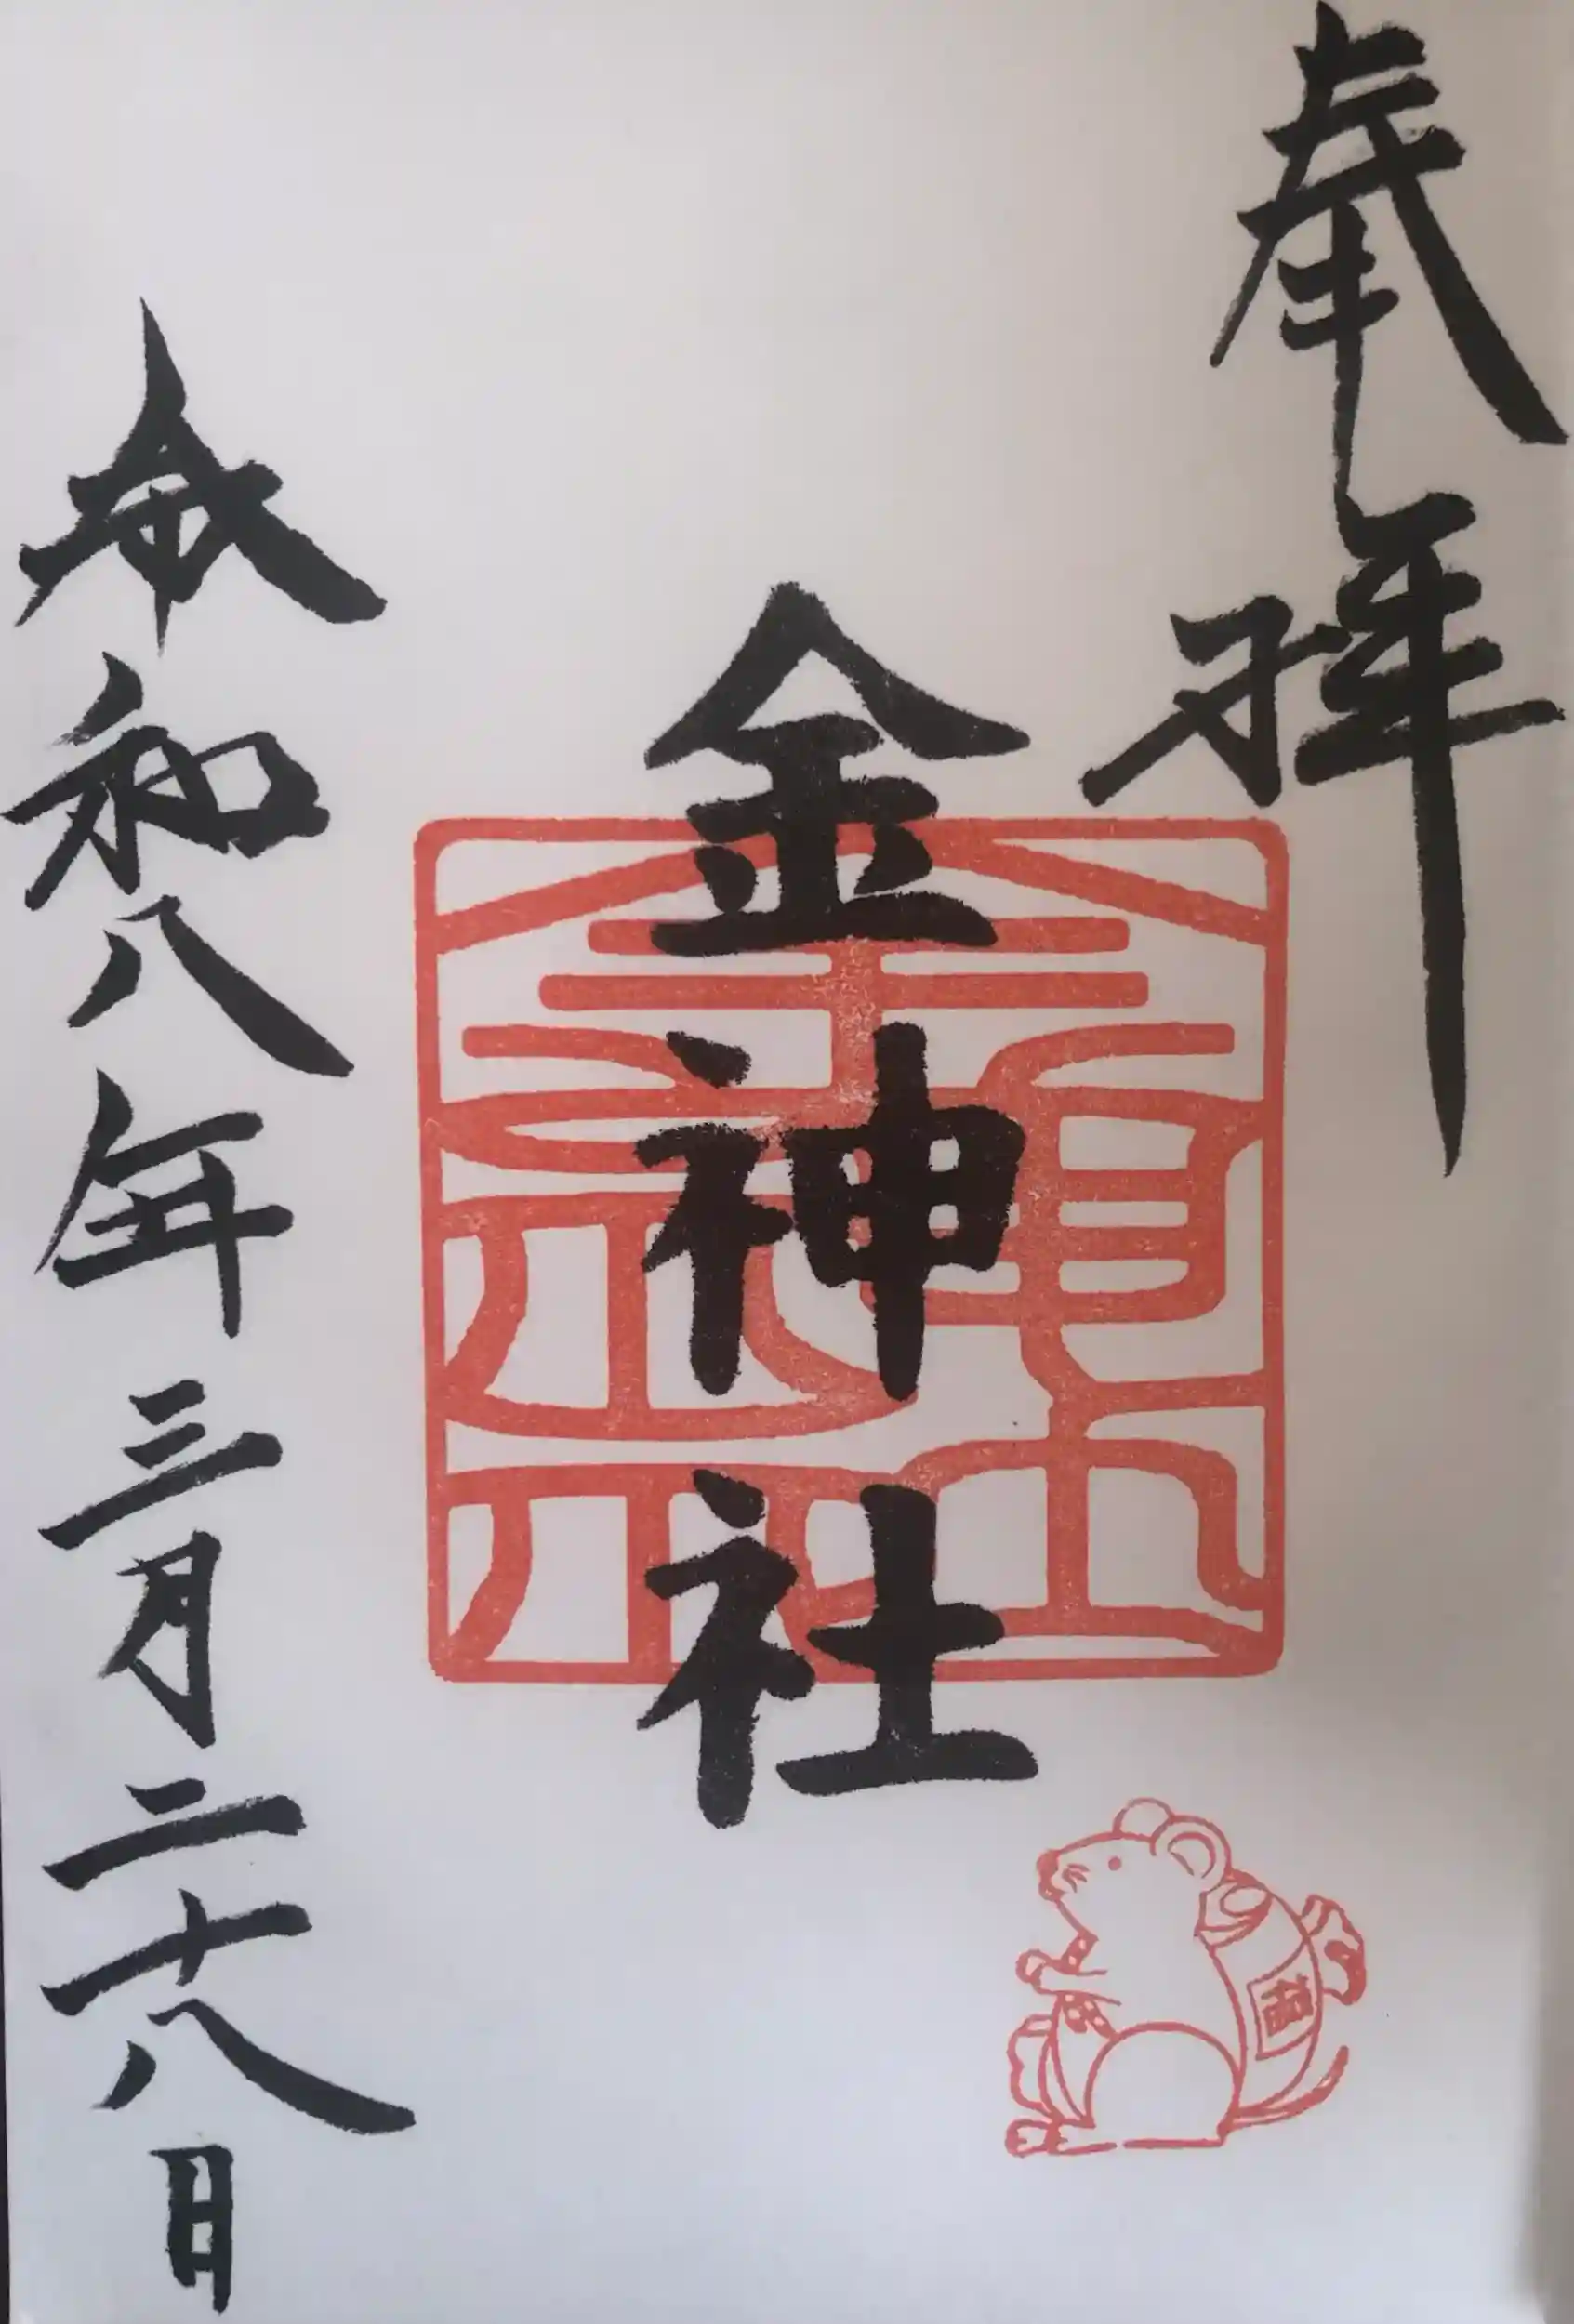 奉拝
金神社
令和八年三月二十八日
金神社
福